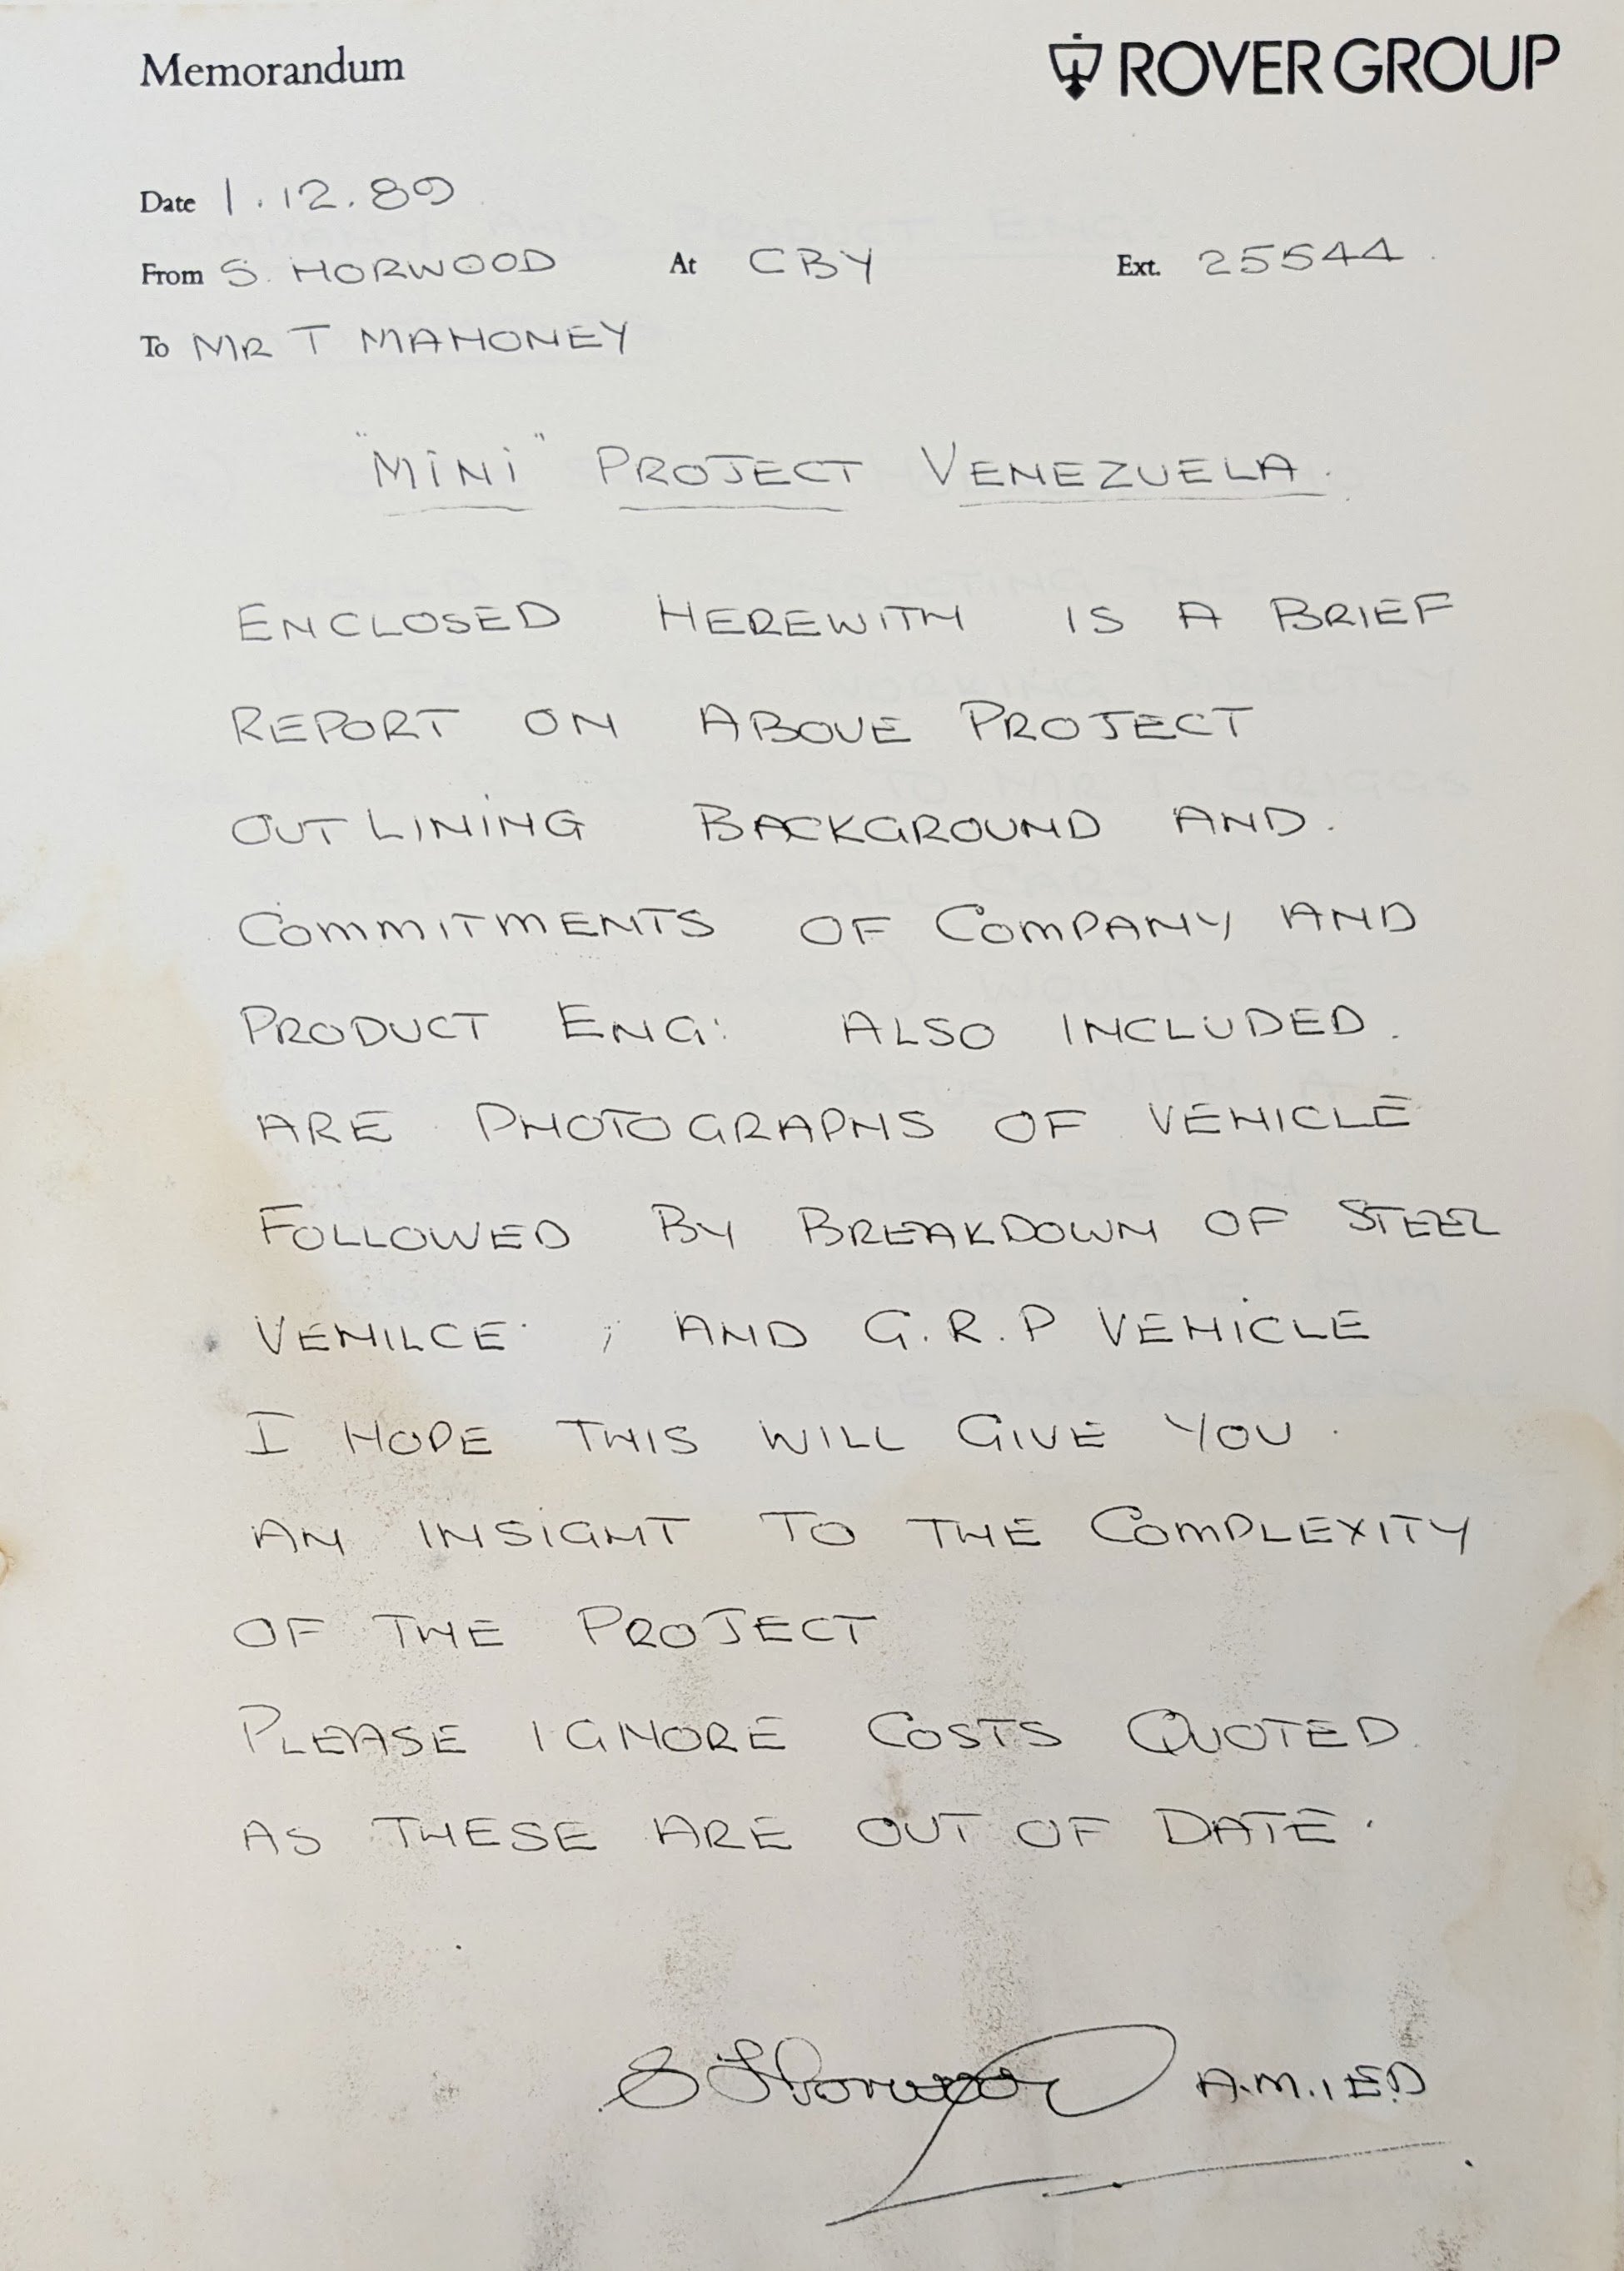 Memorandum
ROVER GROUP
Date 1.12.89
From S. HORWOOD At CBY Ext. 25544
To MR T MAHONEY
"MINI" PROJECT VENEZUELA.
ENCLOSED HEREWITH IS A BRIEF
REPORT ON ABOVE PROJECT
OUTLINING BACKGROUND AND.
COMMITMENTS OF COMPANY AND
PRODUCT ENG: ALSO INCLUDED.
ARE PHOTOGRAPHS OF VEHICLE
FOLLOWED BY BREAKDOWN OF STEEL
VEHILCE ; AND G.R.P VEHICLE
I HOPE THIS WILL GIVE YOU.
AN INSIGHT TO THE COMPLEXITY
OF THE PROJECT
PLEASE IGNORE COSTS QUOTED.
AS THESE ARE OUT OF DATE.
S Horwood A.M.IED